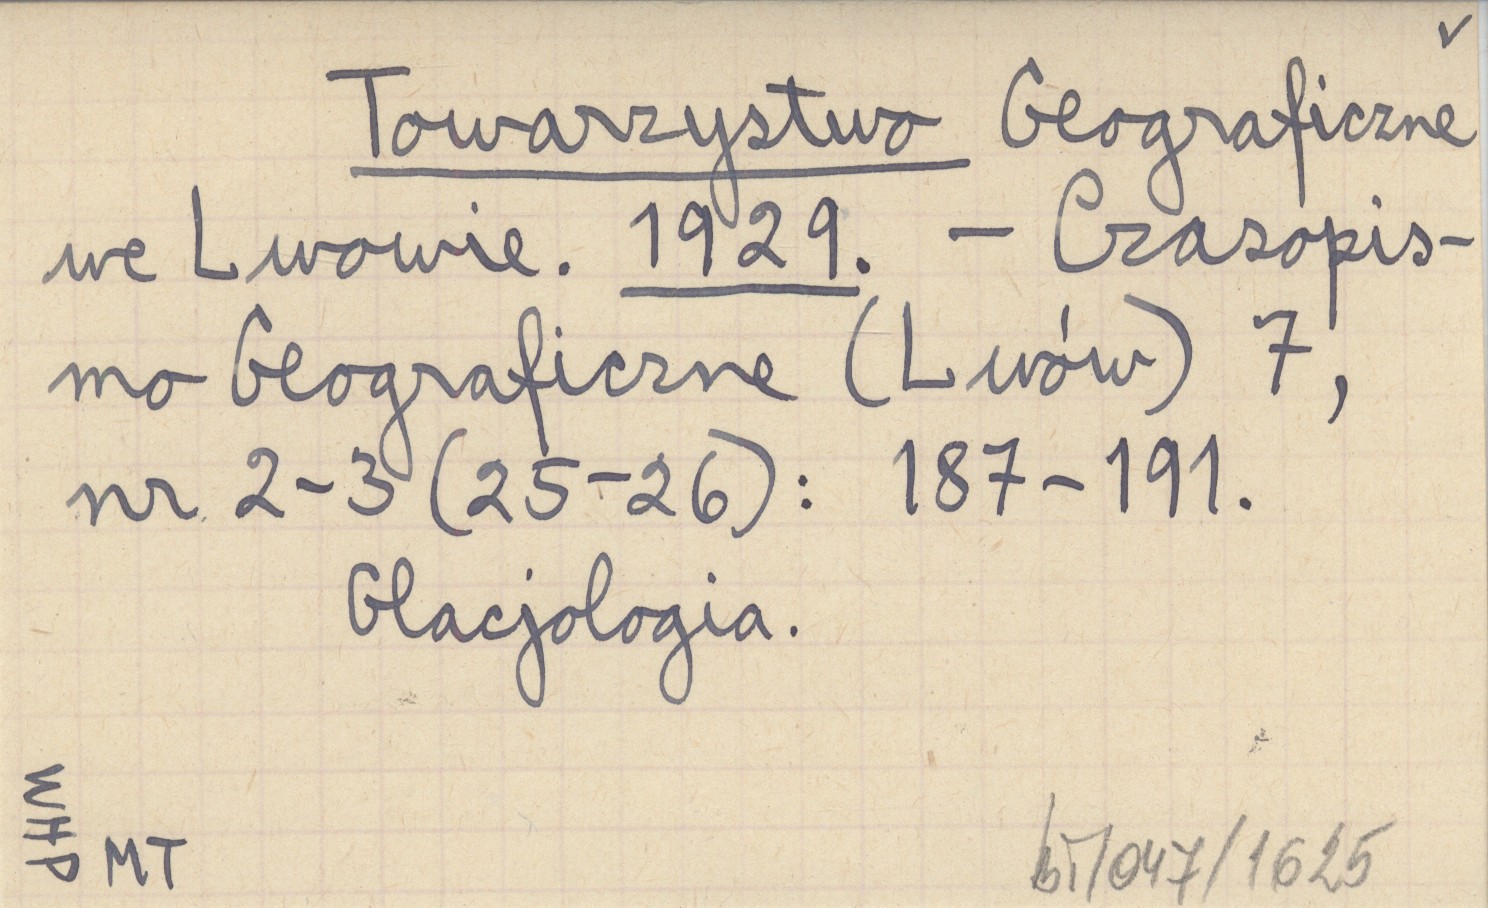 Towarzystwo Geograficzne
we Lwowie. 1929. – Czasopis-
mo Geograficzne (Lwów) 7,
nr 2-3 (25-26): 187-191.
Glacjologia.
WHP
MT
bī/047/1625